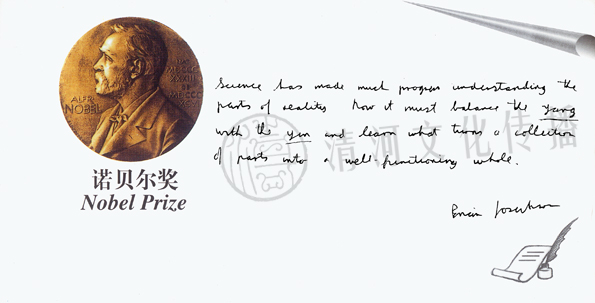 ALFR
NOBEL
诺贝尔奖
Nobel Prize
Science has made much progress understanding the
parts of reality. Now it must balance the yang
with the yin and learn what turns a collection
of parts into a well-functioning whole.
Brian Josephson
清河文化传播